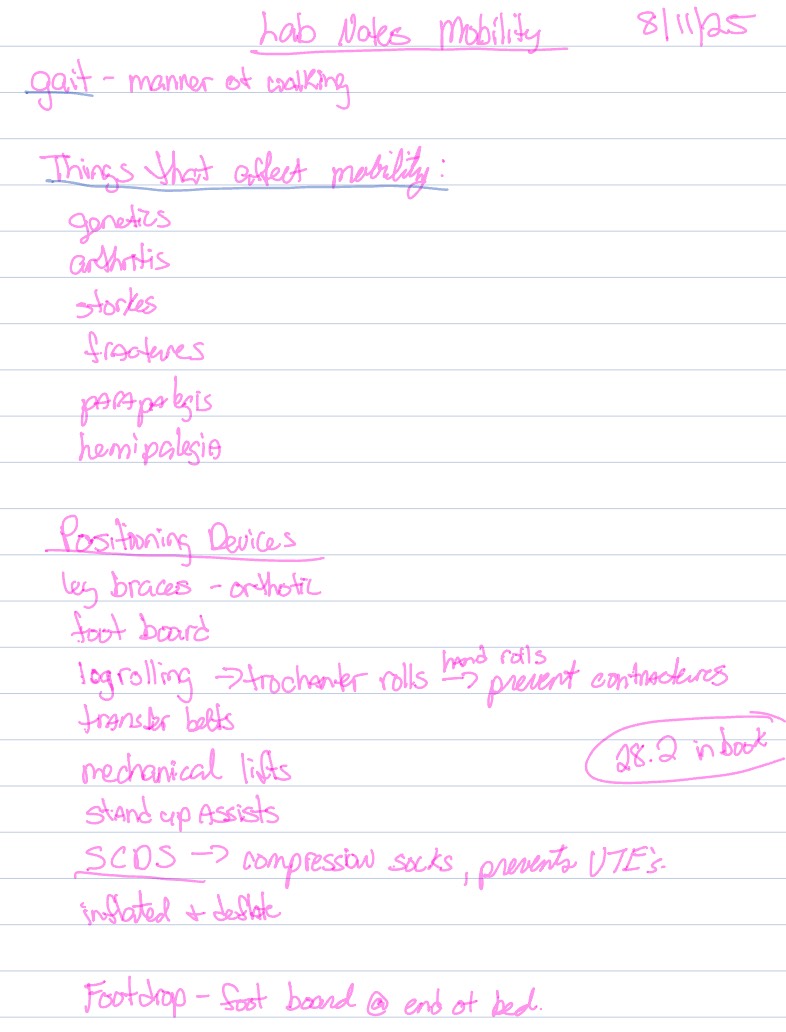 Lab Notes Mobility 8/11/25
gait - manner of walking
Things that affect mobility:
genetics
arthritis
storkes
fractures
parapalegis
hemipalegia
Positioning Devices
leg braces - orthotic
foot board
hand rolls
logrolling → trochanter rolls → prevent contractures
transfer belts
28.2 in book
mechanical lifts
stand up Assists
SCDS → compression socks, prevents VTE's.
inflated + deflate
Footdrop - foot board @ end of bed.